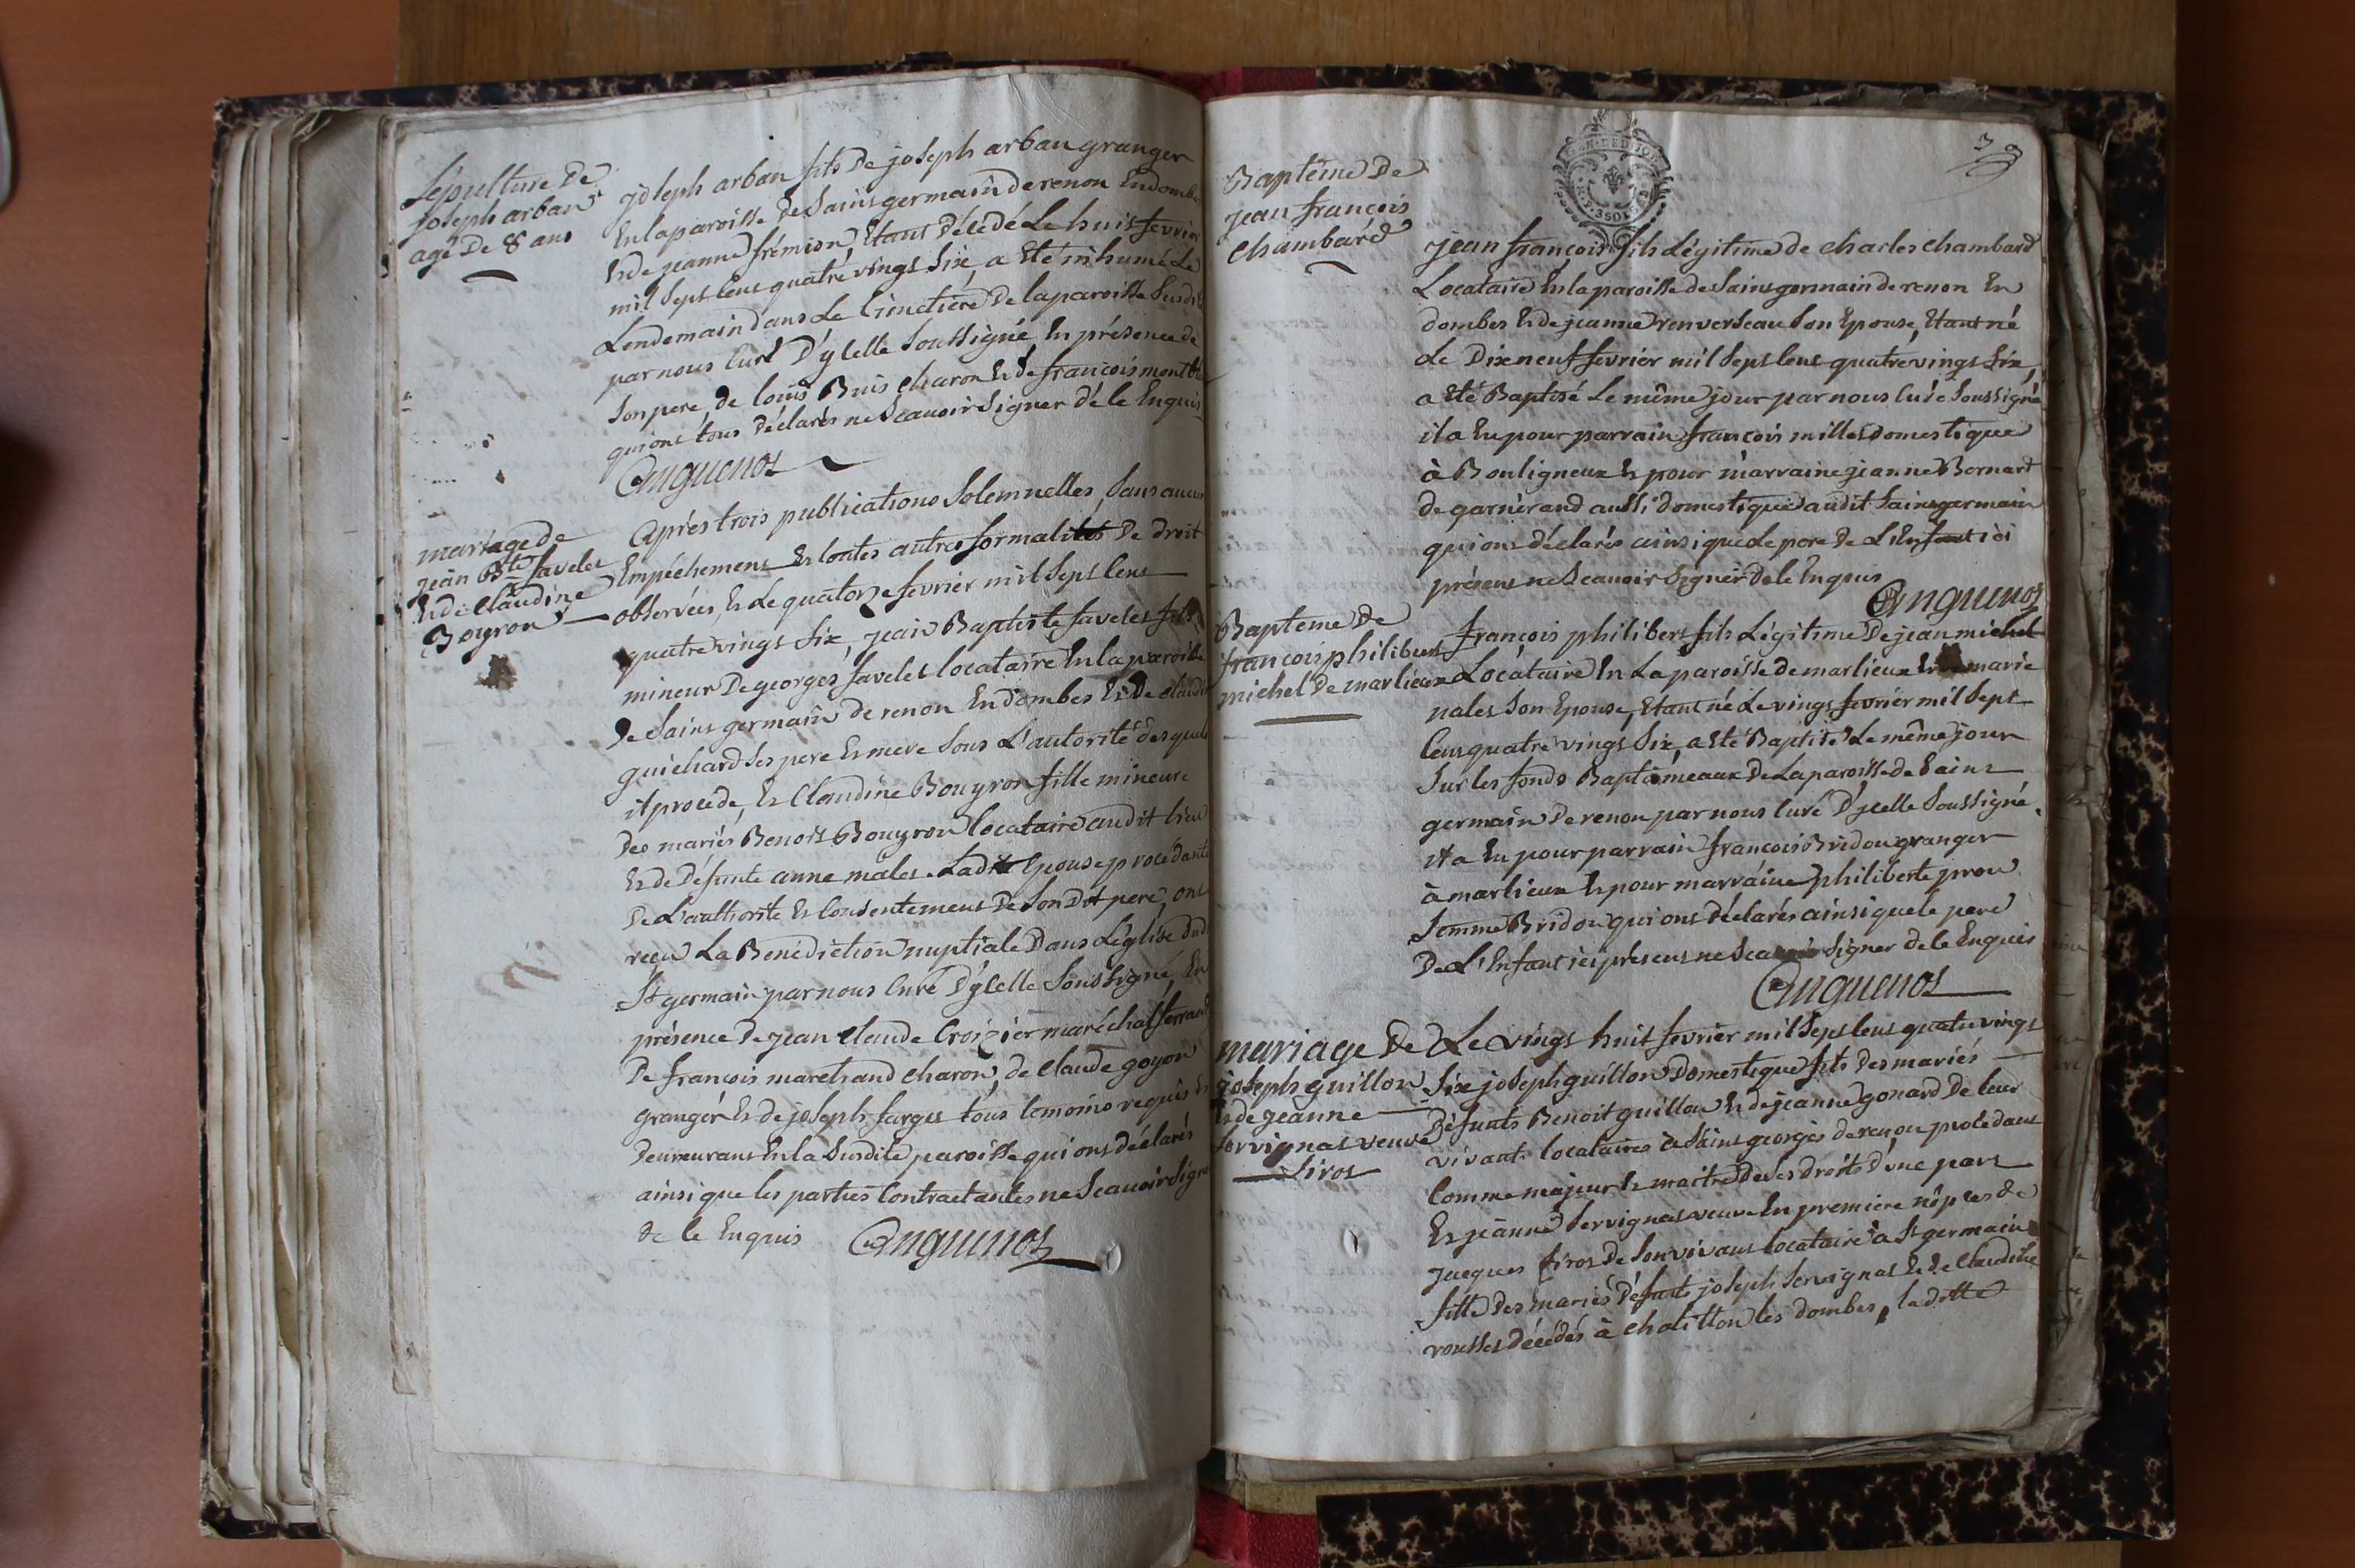 Sépulture De
joseph arban
agé De 8 ans
joseph arban fils De joseph arban granger
En la paroisse De Saint germain de renon En dombes
Et de jeanne frémion, Etant Décédé Le huit fevrier
mil Sept Cent quatre vingt Six, a Eté inhumé Le
Lendemain dans Le Cimetière De la paroisse Susdite
par nous Curé D'ycelle Soussigné En présence de
Son pere, de louis Buis charon Et de francois
qui ont tous Déclarés ne Scavoir Signer de Ce Enquis
Anguenot
mariage de
jean Bte favelet
Et de Claudine
Boyron
Après trois publications Solemnelles, Sans aucun
Empêchement Et toutes autres formalités De Droit
observées, Et Le quatorze fevrier mil Sept Cent
quatre vingt Six, jean Baptiste favelet fils
mineur De georges favelet locataire En la paroisse
De Saint germain de renon En dombes Et De claudine
guichard Ses pere Et mere Sous L'autorité desquels
il procede, Et Claudine Bouyron fille mineure
Des mariés Benoit Bouyron locataire audit lieu
Et de Défunte anne males. Ladite Epouse procédante
De L'authorité Et Consentement De Son Dit pere, ont
reçu La Bénédiction nuptiale Dans L'église dud
St germain par nous Curé D'ycelle Soussigné, En
présence De jean Claude Croizier maréchal ferrant
De francois marchand charon, de Claude goyon
granger Et de joseph farges tous temoins requis Et
Demeurant En la Susdite paroisse qui ont Déclarés
ainsi que les parties Contractantes ne Scavoir Signer
de Ce Enquis Anguenot
39
GEN. DED
3 SOLS
Baptême De
jean françois
Chambard
jean françois fils Légitime de charles chambard
Locataire En la paroisse de Saint germain de renon En
dombes Et de jeanne renverseau Son Epouse, Etant né
Le Dix neuf fevrier mil Sept Cent quatre vingt Six,
a Eté Baptisé Le même jour par nous Curé Soussigné
il a Eu pour parrain françois millet domestique
à Bouligneux Et pour marraine jeanne Bernard
de garnérand aussi domestique audit Saint germain
qui ont déclarés ainsi que Le pere De L'Enfant ici
présent ne Scavoir Signer de Ce Enquis
Anguenot
Baptême De
francois philibert
michel De marlieux
françois philibert fils Légitime De jean michel
Locataire En La paroisse de marlieux Et de marie
pales Son Epouse, Etant né Le vingt fevrier mil Sept
Cent quatre vingt Six, a Eté Baptisé Le même jour
Sur les fonds Baptismeaux De La paroisse de Saint
germain De renon par nous Curé D'ycelle Soussigné.
il a Eu pour parrain françois Bridon granger
à marlieux Et pour marraine philiberte prou
femme Bridon qui ont Déclarés ainsi que le pere
De L'Enfant ici présent ne Scavoir Signer de Ce Enquis
Anguenot
mariage De
joseph guillon
Et de jeanne
Servignat veuve
Siros
Le vingt huit fevrier mil Sept Cent quatre vingt
Six joseph guillon Domestique fils Des mariés
Défunts Benoit guillon Et de jeanne gonard De leur
vivant locataires à Saint georges de renon procédant
Comme majeur Et maitre De Ses droits D'une part
Et jeanne Servignat veuve En premiere nôpces de
jacques Siros De Son vivant locataire à St germain
fille Des mariés Défunts joseph Servignat Et de Claudine
rousset décédés à chatillon les dombes, laditte